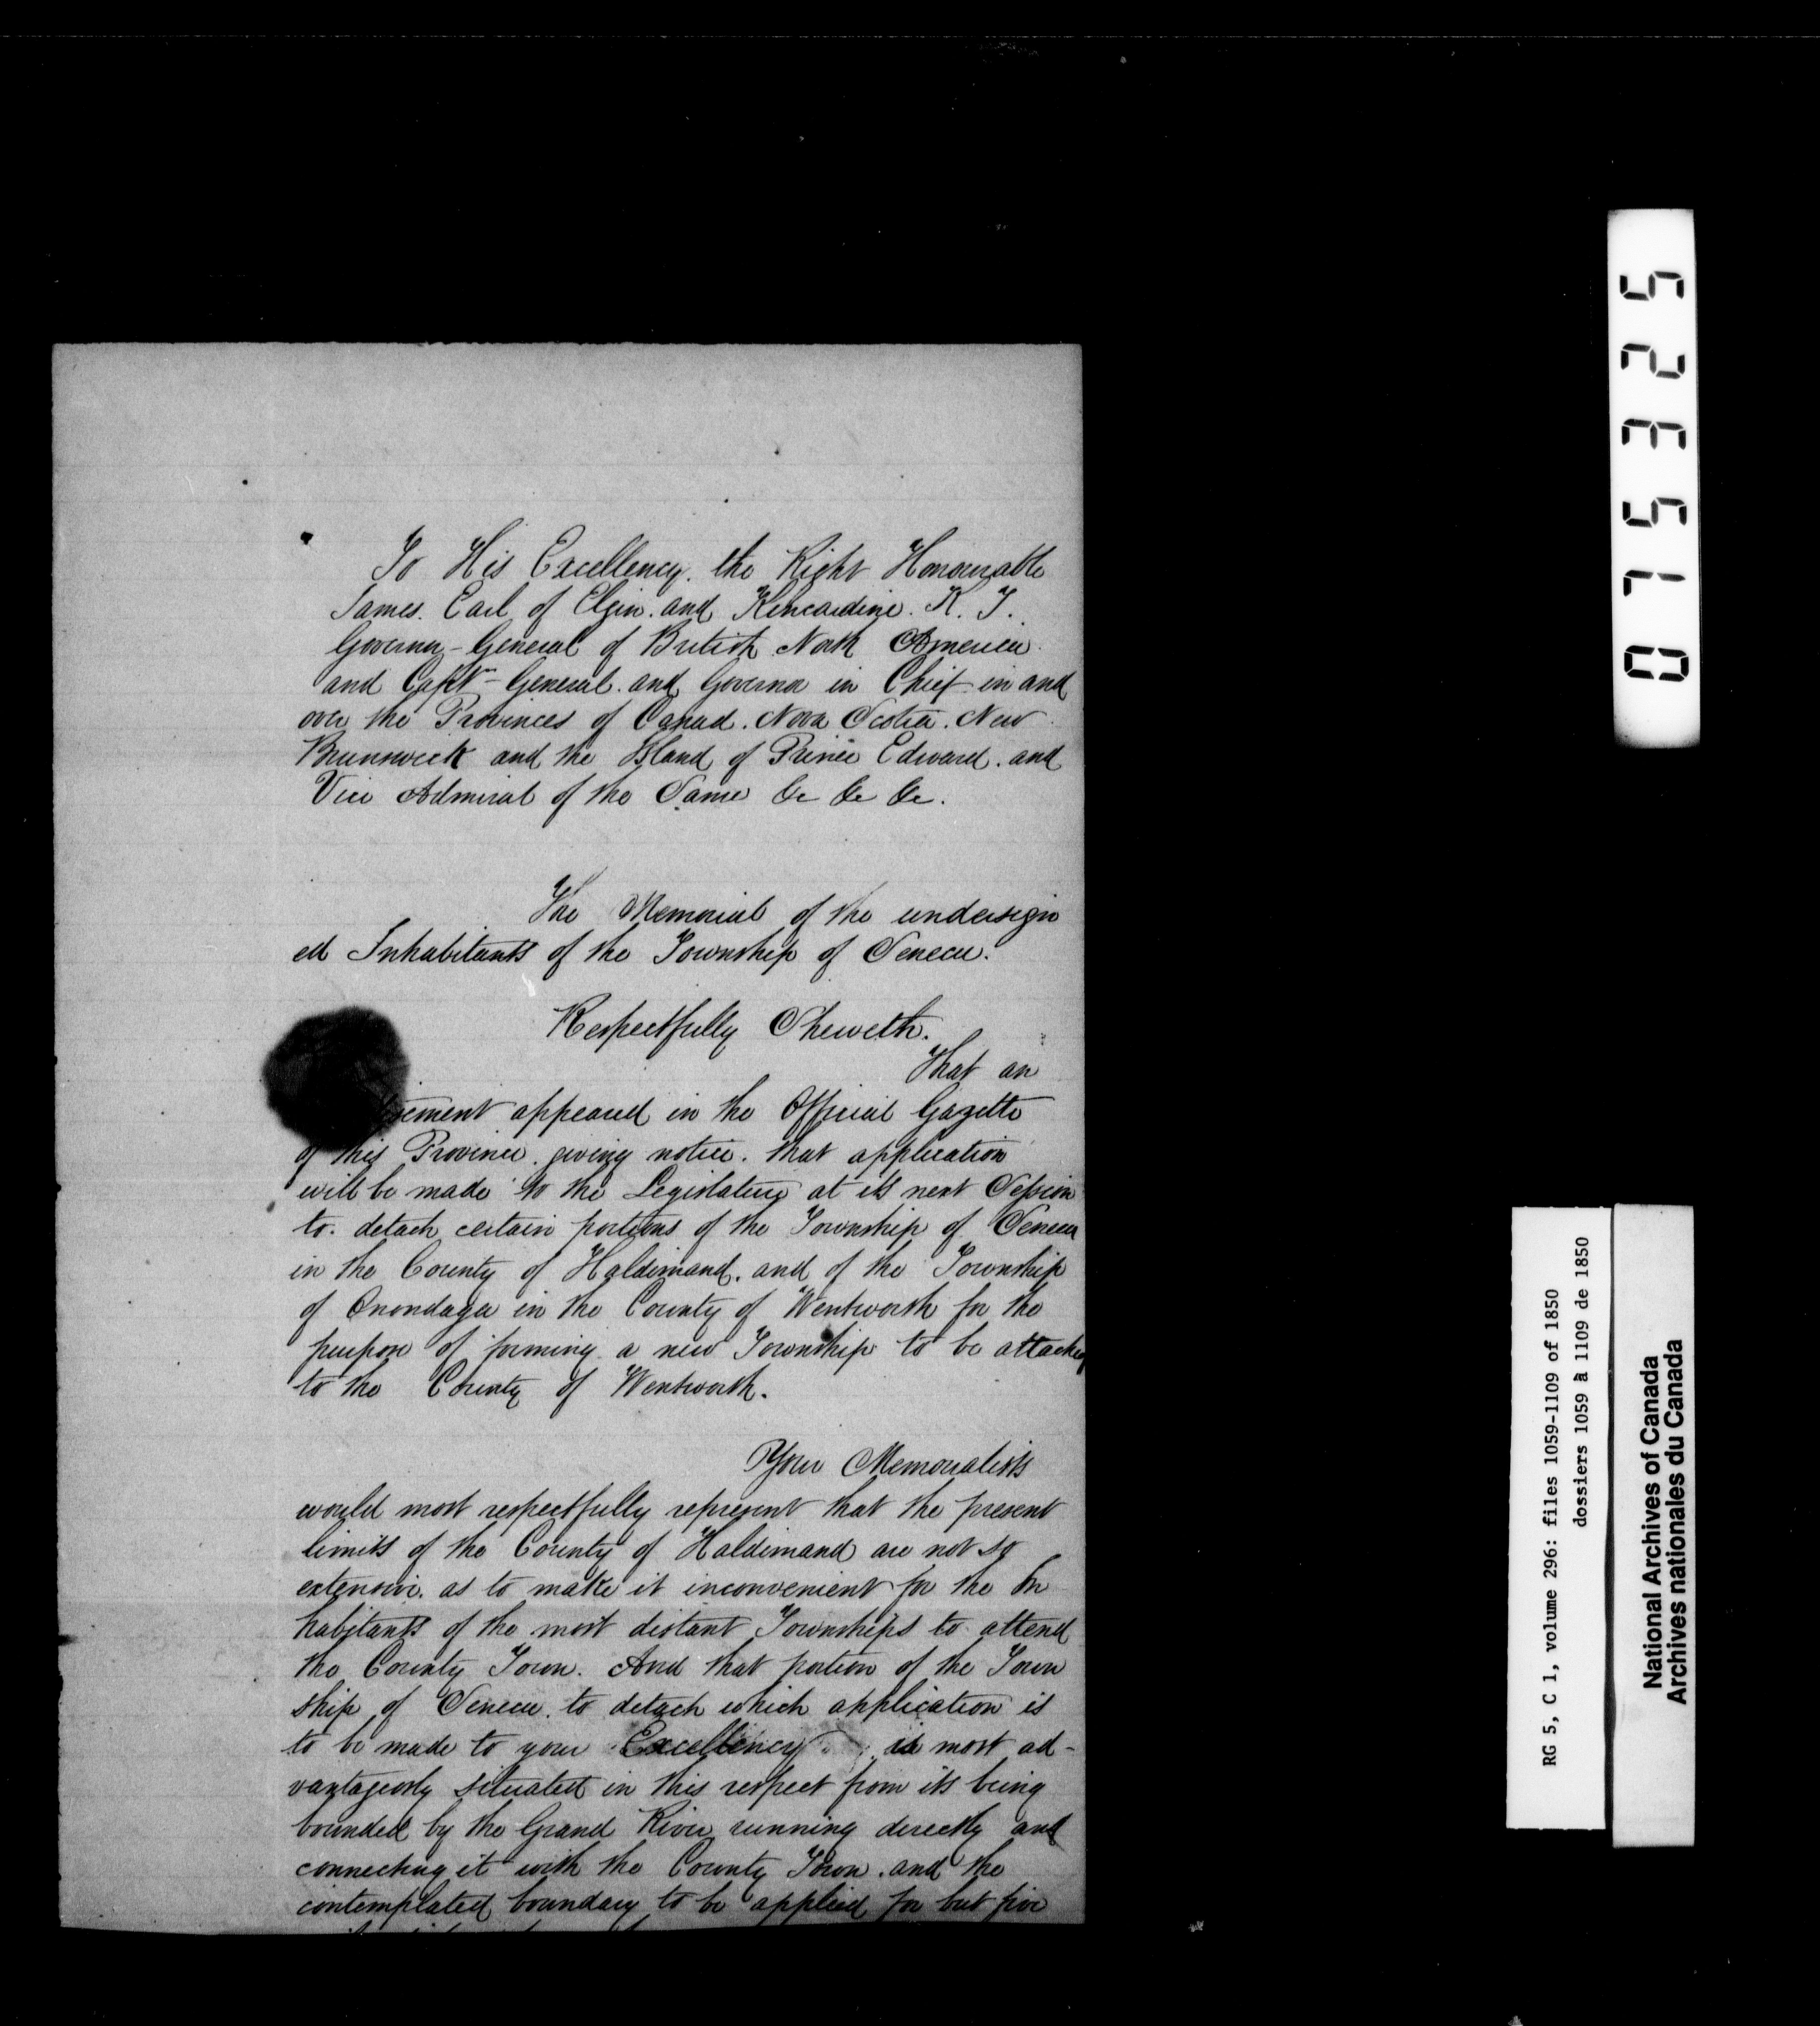 To His Excellency. the Right Honourable
James. Earl of Elgin. and Kincardine. K. T.
Governor-General of British North America.
and Capt-General. and Governor in Chief in and
over the Provinces of Canad. Nova Scotia. New
Brunswick and the Island of Prince Edward. and
Vice Admiral of the Same &c &c &c.
The Memorial of the undersign
ed Inhabitants of the Township of Seneca.
Respectfully Sheweth.
That an
isement appeared in the Official Gazette
of this Province. giving notice. that application
will be made to the Legislature at its next Session
to. detach certain portions of the Township of Seneca
in the County of Haldimand. and of the Township
of Onondaga in the County of Wentworth for the
purpose of forming a new Township to be attached
to the County of Wentworth.
Your Memorialists
would most respectfully represent that the present
limits of the County of Haldimand are not so
extensive. as to make it inconvenient for the In
habitants of the most distant Townships to attend
the County Town. And that portion of the Town
ship of Seneca. to detach which application is
to be made to your Excellency is most ad-
vantageously situated in this respect from its being
bounded by the Grand River running directly and
connecting it with the County Town. and the
contemplated boundary to be applied for but five
0 7 5 3 2 5
RG 5, C 1, volume 296: files 1059-1109 of 1850
dossiers 1059 à 1109 de 1850
National Archives of Canada
Archives nationales du Canada